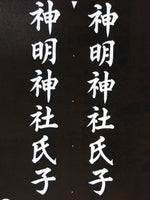 神明神社氏子
神明神社氏子